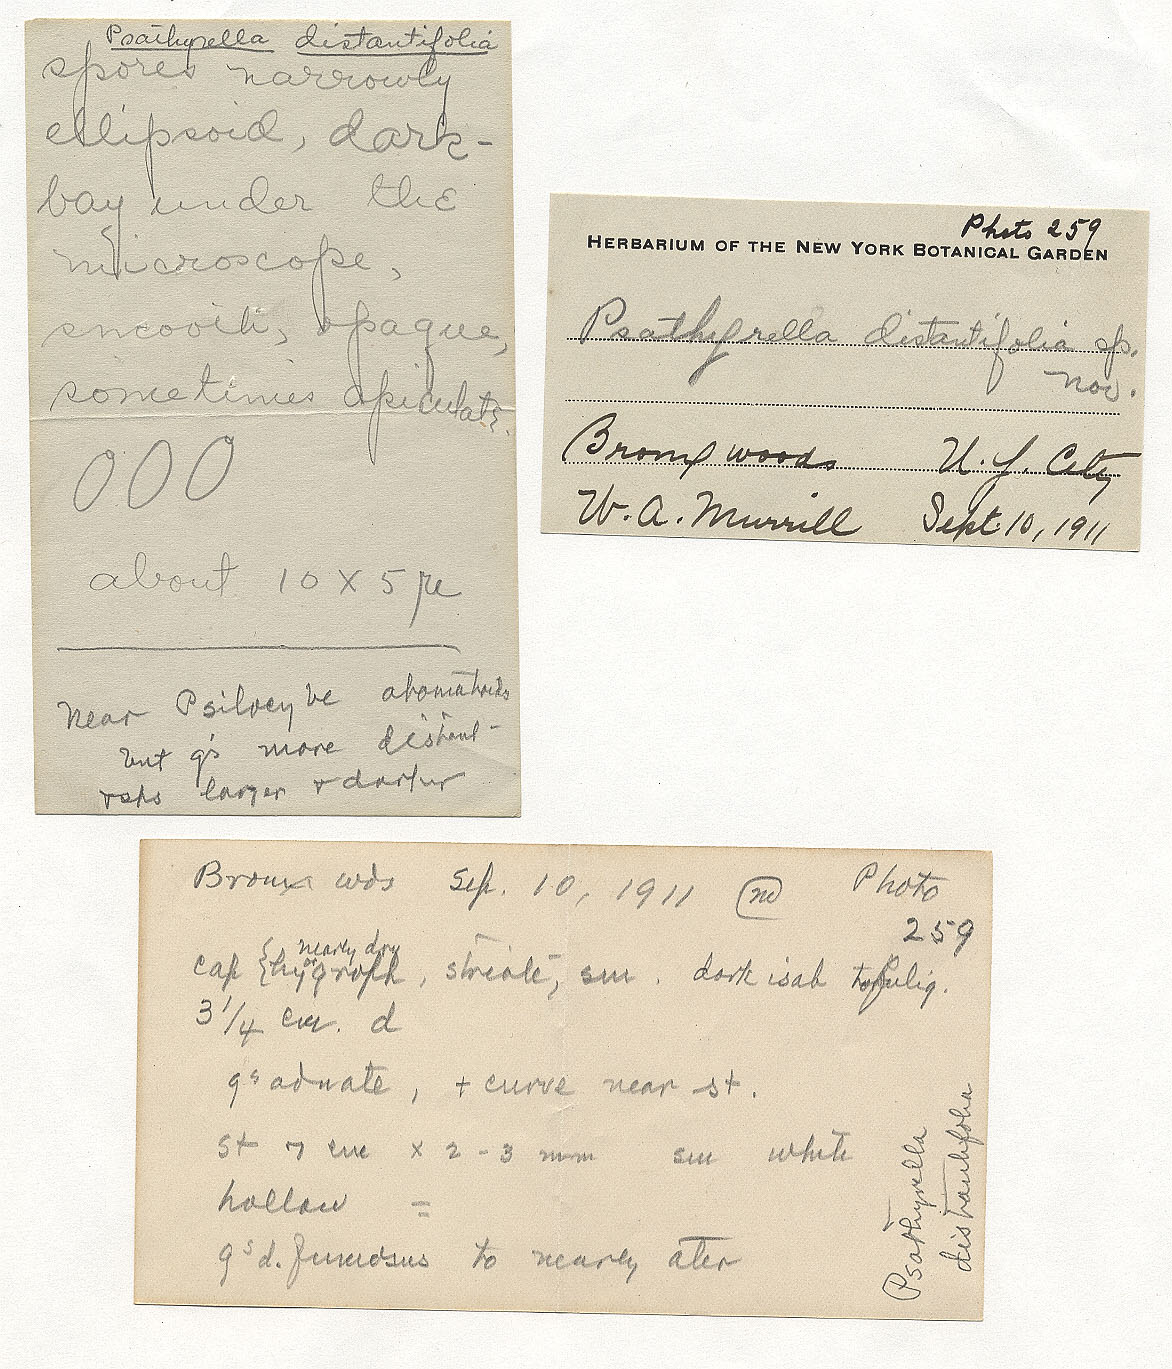 Psathyrella distantifolia
spores narrowly
ellipsoid, dark-
bay under the
microscope,
smooth, opaque,
sometimes apiculate.
about 10 X 5 μ
Near Psilocybe
but g's more distant
+ sps larger + darker
Photo 259
HERBARIUM OF THE NEW YORK BOTANICAL GARDEN
Psathyrella distantifolia sp.
nov.
Bronx woods N. Y. City
W. A. Murrill Sept. 10, 1911
Bronx wds Sep. 10, 1911 Photo
259
nearly dry
cap { hygroph, striate, sm. dark isab to fulig.
3 1/4 cm. d
gs adnate, + curve near st.
st 7 cm x 2-3 mm sm white
hollow =
gs d. fumosus to nearly ater
Psathyrella
distantifolia